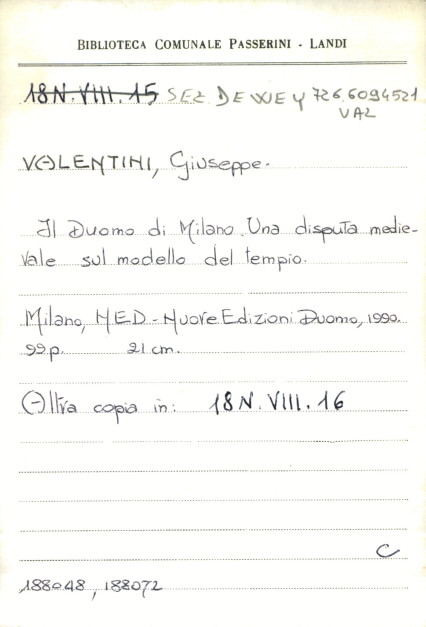 BIBLIOTECA COMUNALE PASSERINI - LANDI
18N.VIII.15 SEZ DEWEY 726.6094521
VAL
VALENTINI, Giuseppe.
Il Duomo di Milano. Una disputa medie-
vale sul modello del tempio.
Milano, NED - Nuove Edizioni Duomo, 1990.
99 p. 21 cm.
Altra copia in: 18N.VIII.16
C
188048, 188072